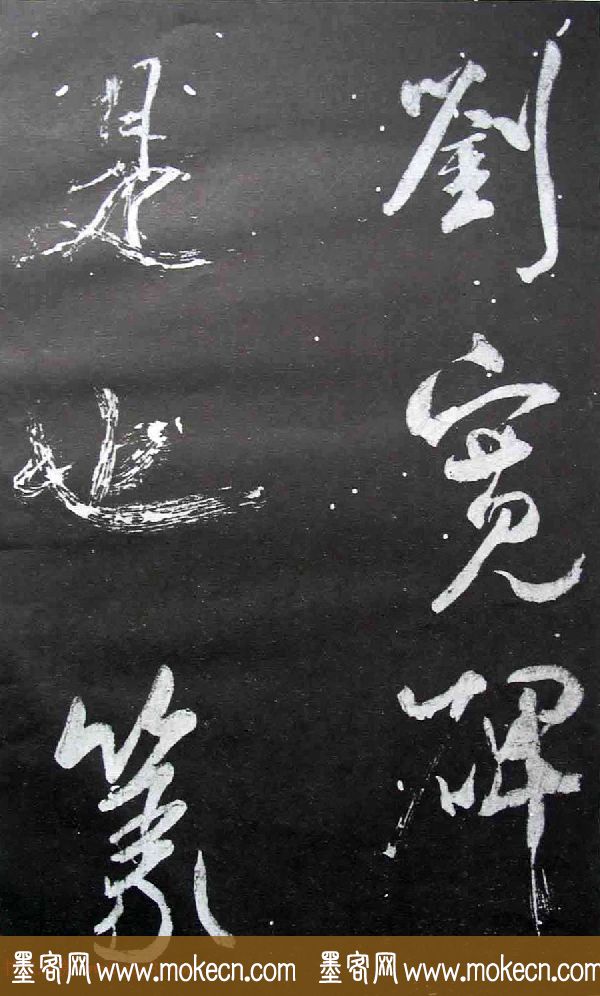 劉寬碑
是也篆
墨客网 www.mokecn.com 墨客网 www.mokecn.com